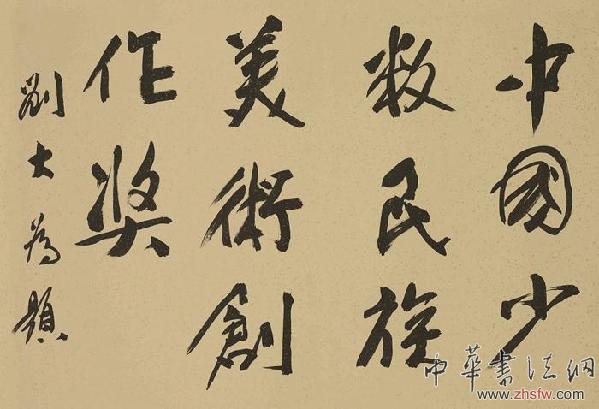 中國少
数民族
美術創
作奖
劉大為題
中華書法網
www.zhsfw.com